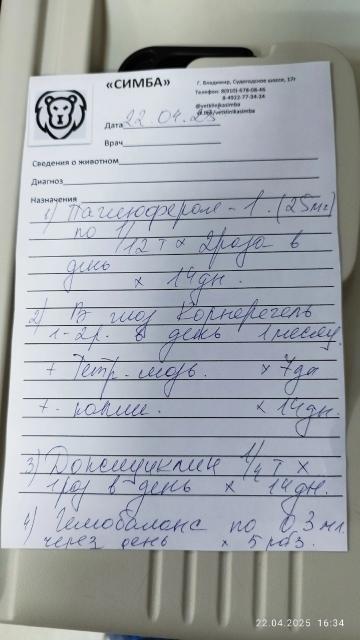 «СИМБА»
г. Владимир, Судогодское шоссе, 17г
Телефон: 8(910)-678-08-46
8-4922-77-34-24
@vetklinikasimba
vk.me/vetklinikasimba
Дата 22.04.25
Врач
Сведения о животном
Диагноз
Назначения
1) - 1. (25мг)
по 1/12 т х 2раза в
день
х 14дн.
2) В глаз Корнерегель
1-2р. в день 1месяц
+ Тетр. мазь х 7дн
+ капли. х 14дн.
3) 1/4 т х
1раз в день х 14дн.
4) Гемобаланс по 0,3мл.
через день х 5раз.
22.04.2025 16:34